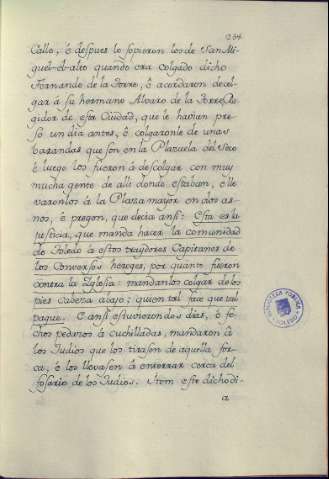 264
Callo, é despues lo supieron los de San Mi-
guel-el-alto quando era colgado dicho
Fernando de la Torre, ê acordaron de col-
gar á su hermano Alvaro de la Torre Re-
gidor de esta Ciudad, que le havian pre-
so un dia antes, ê colgaronle de unas
barandas que son en la Plazuela del Seco
ê luego los fueron á descolgar con muy
mucha gente de alli donde estaban, ê lle-
varonlos á la Plaza mayor en dos as-
nos, ê pregon, que decia ansi: Esta es la
justicia, que manda hacer la comunidad
de Toledo â estos traydores Capitanes de
los Conversos hereges, por quanto fueron
contra la Iglesia: mandanlos colgar de los
pies cabeza abajo; quien tal face que tal
pague. E ansi estuvieron dos dias, ê fe-
chos pedazos â cuchilladas, mandaron â
los Judios que los tirasen de aquella for-
ca, ê los llevasen â enterrar cerca del
fosario de los Judios. Item este dicho di-
a
BIBLIOTECA PUBLICA
TOLEDO